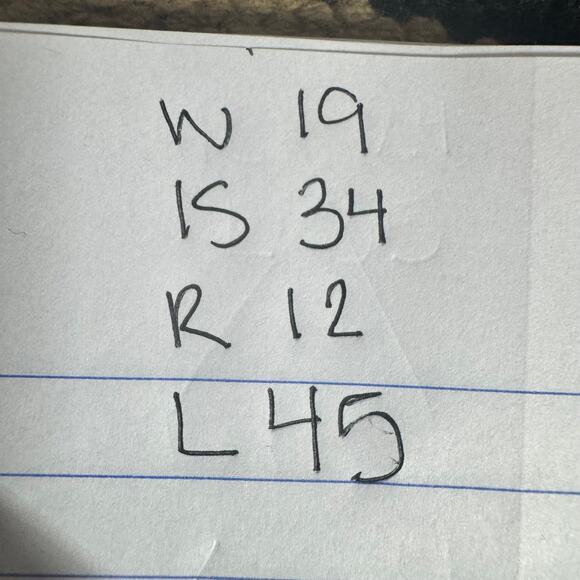 W 19
IS 34
R 12
L 45